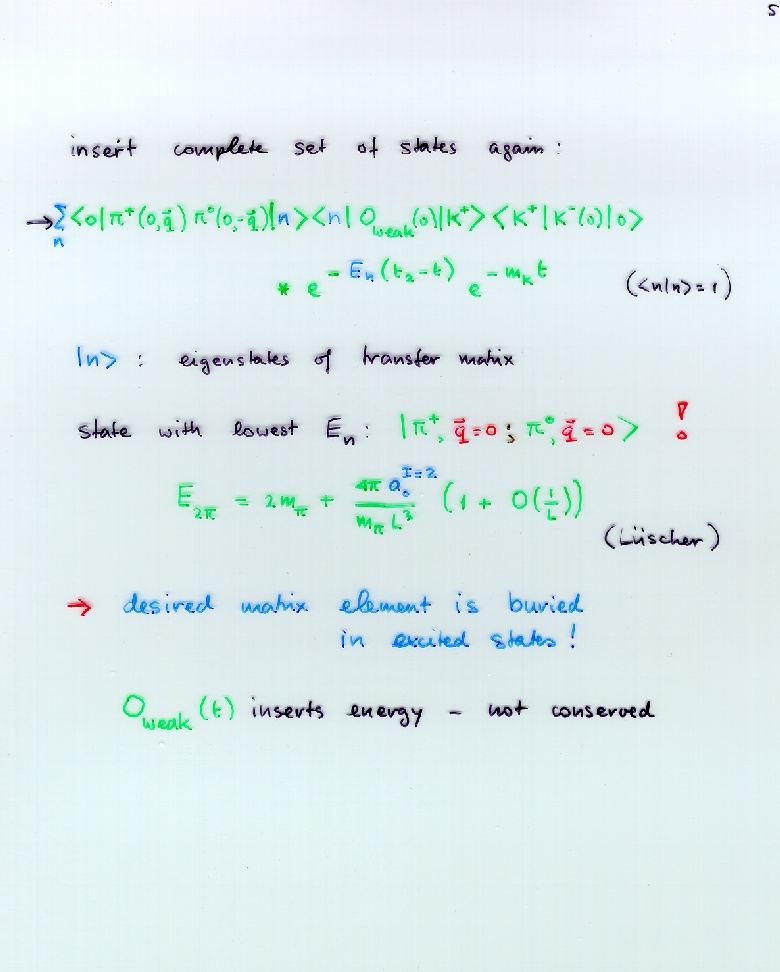 5
insert complete set of states again :
→ Σ_n <0|π⁺(0,q⃗) π⁰(0,-q⃗)|n><n| O_weak(0)|K⁺> <K⁺|K⁻(0)|0>
* e^{-E_n(t_2-t)} e^{-m_K t} (<n|n> = 1)
|n> : eigenstates of transfer matrix
state with lowest E_n : |π⁺, q⃗=0 ; π⁰, q⃗=0> !
E_2π = 2m_π + \frac{4π a_0^{I=2}}{m_π L³} (1 + O(\frac{1}{L}))
(Lüscher)
→ desired matrix element is buried
in excited states !
O_weak(t) inserts energy – not conserved